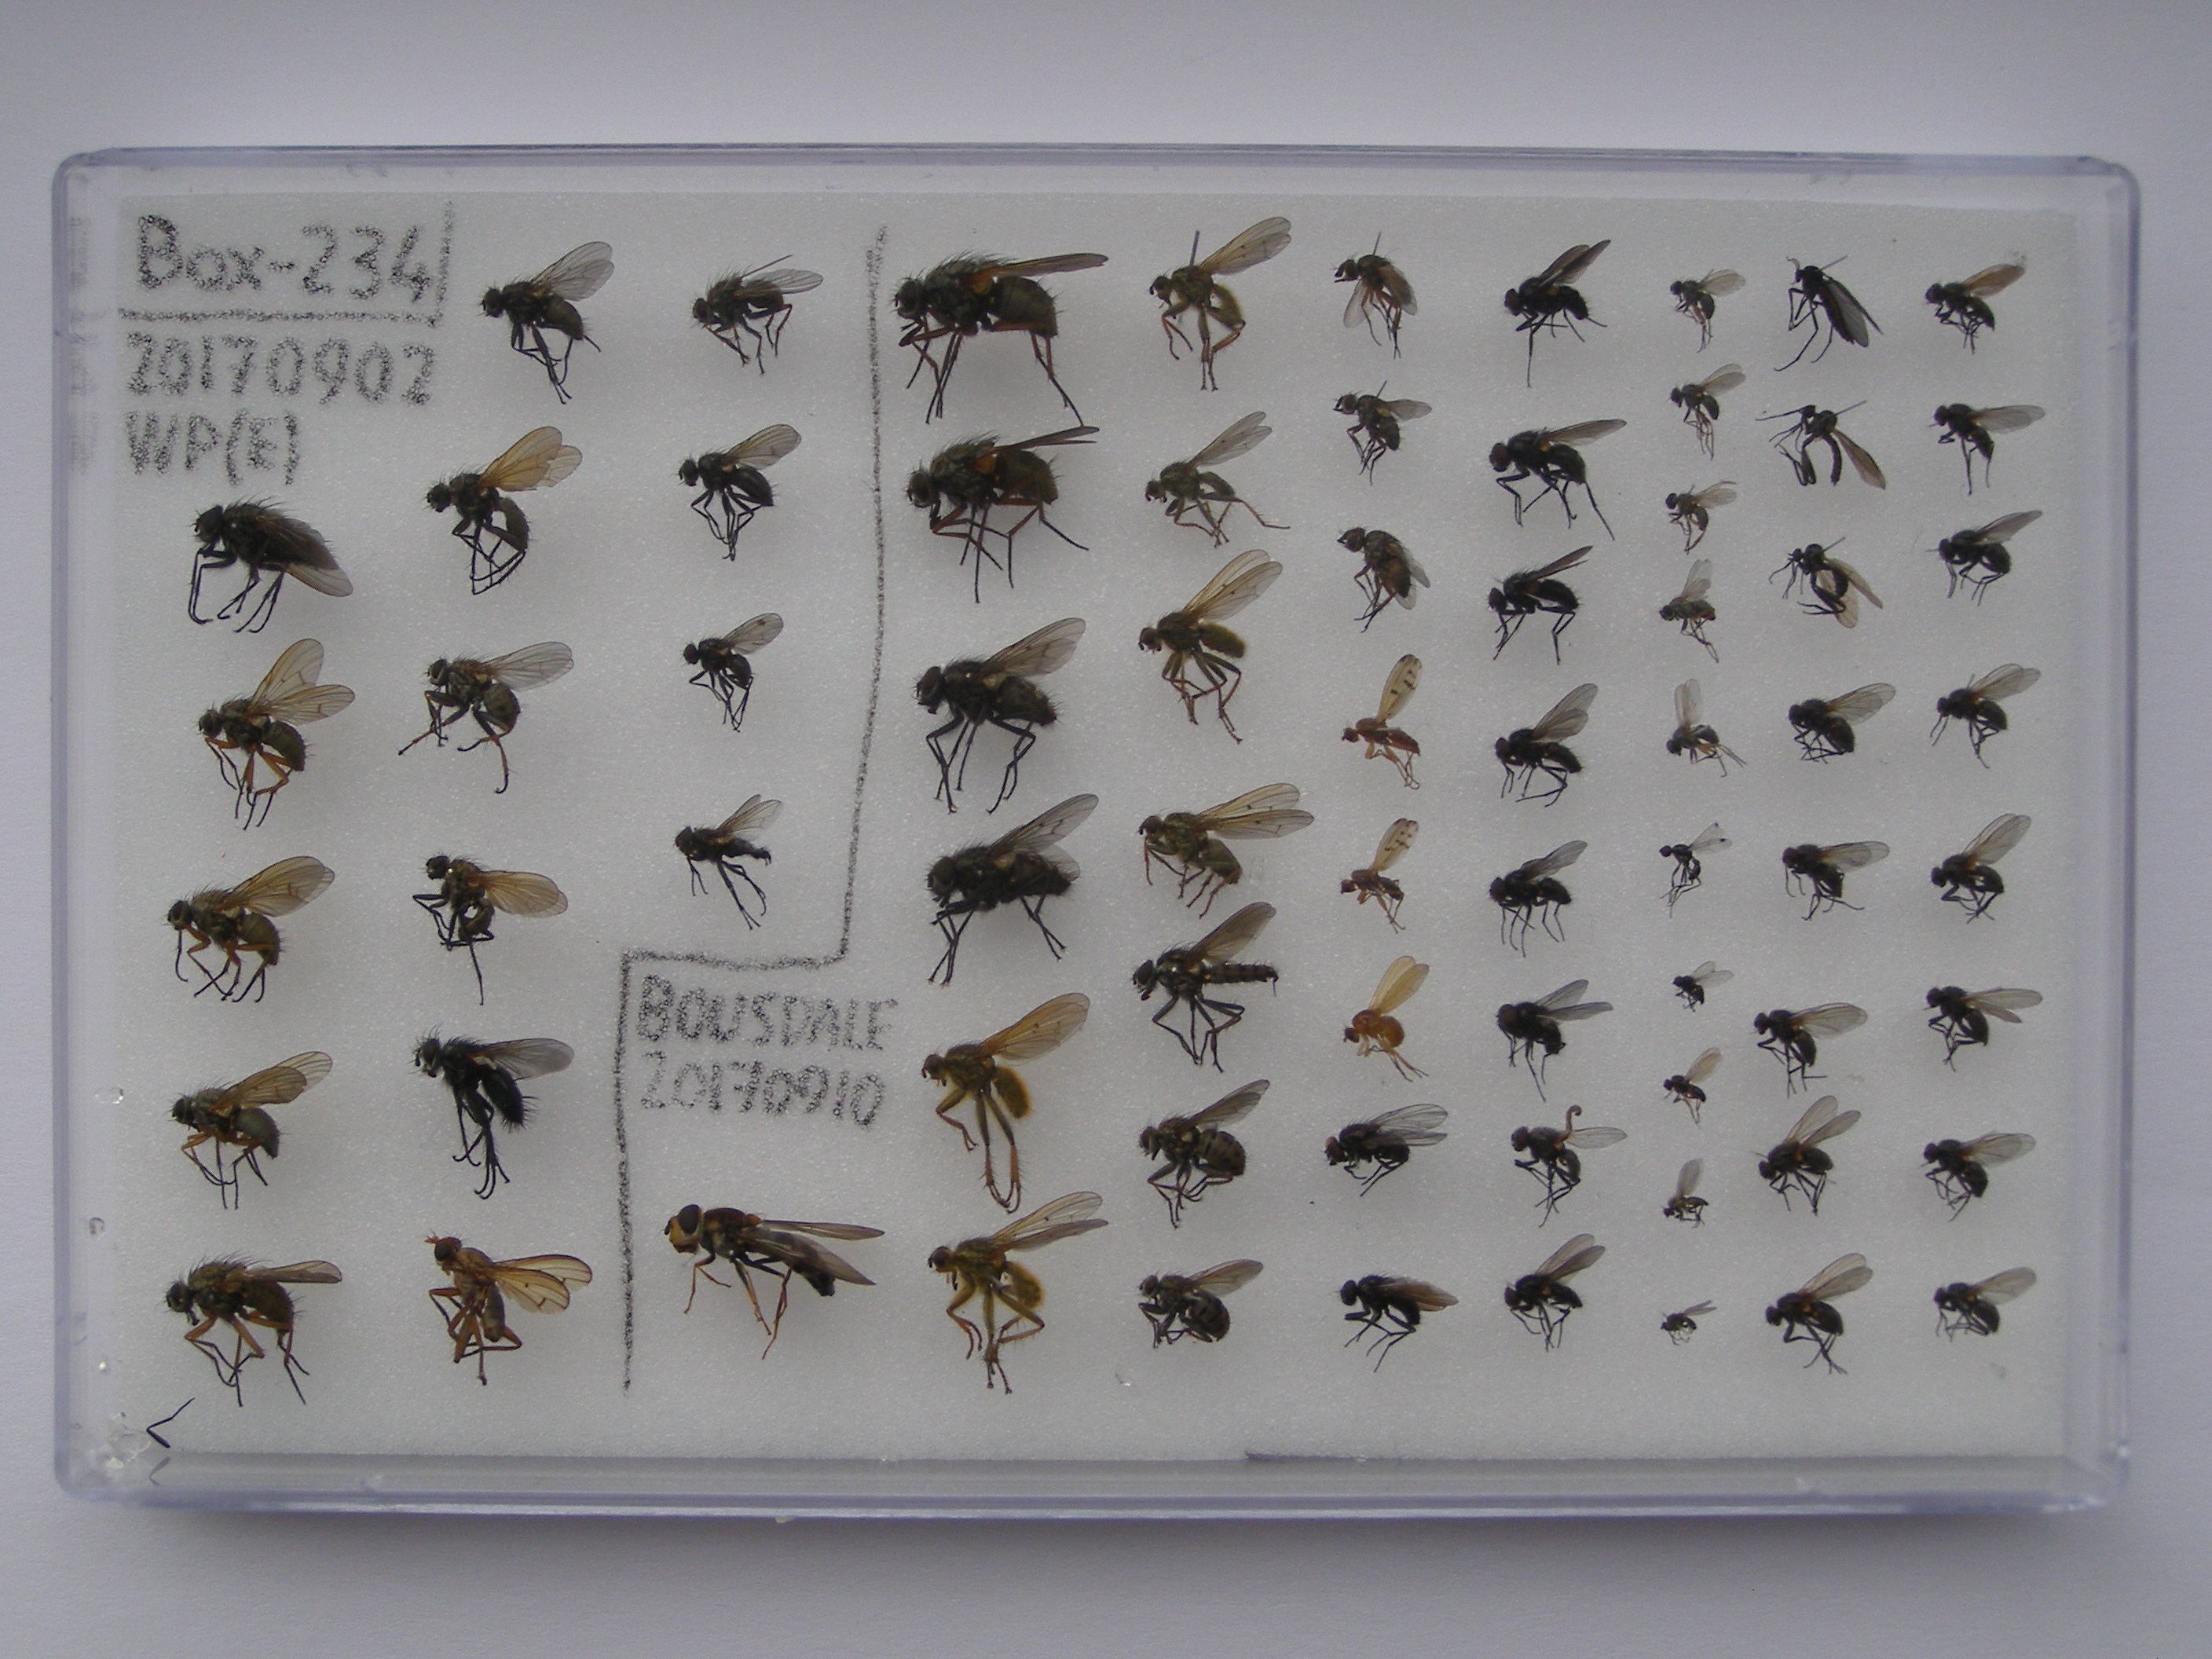 Box-234
20170902
WP(E)
BOUSDALE
20170910